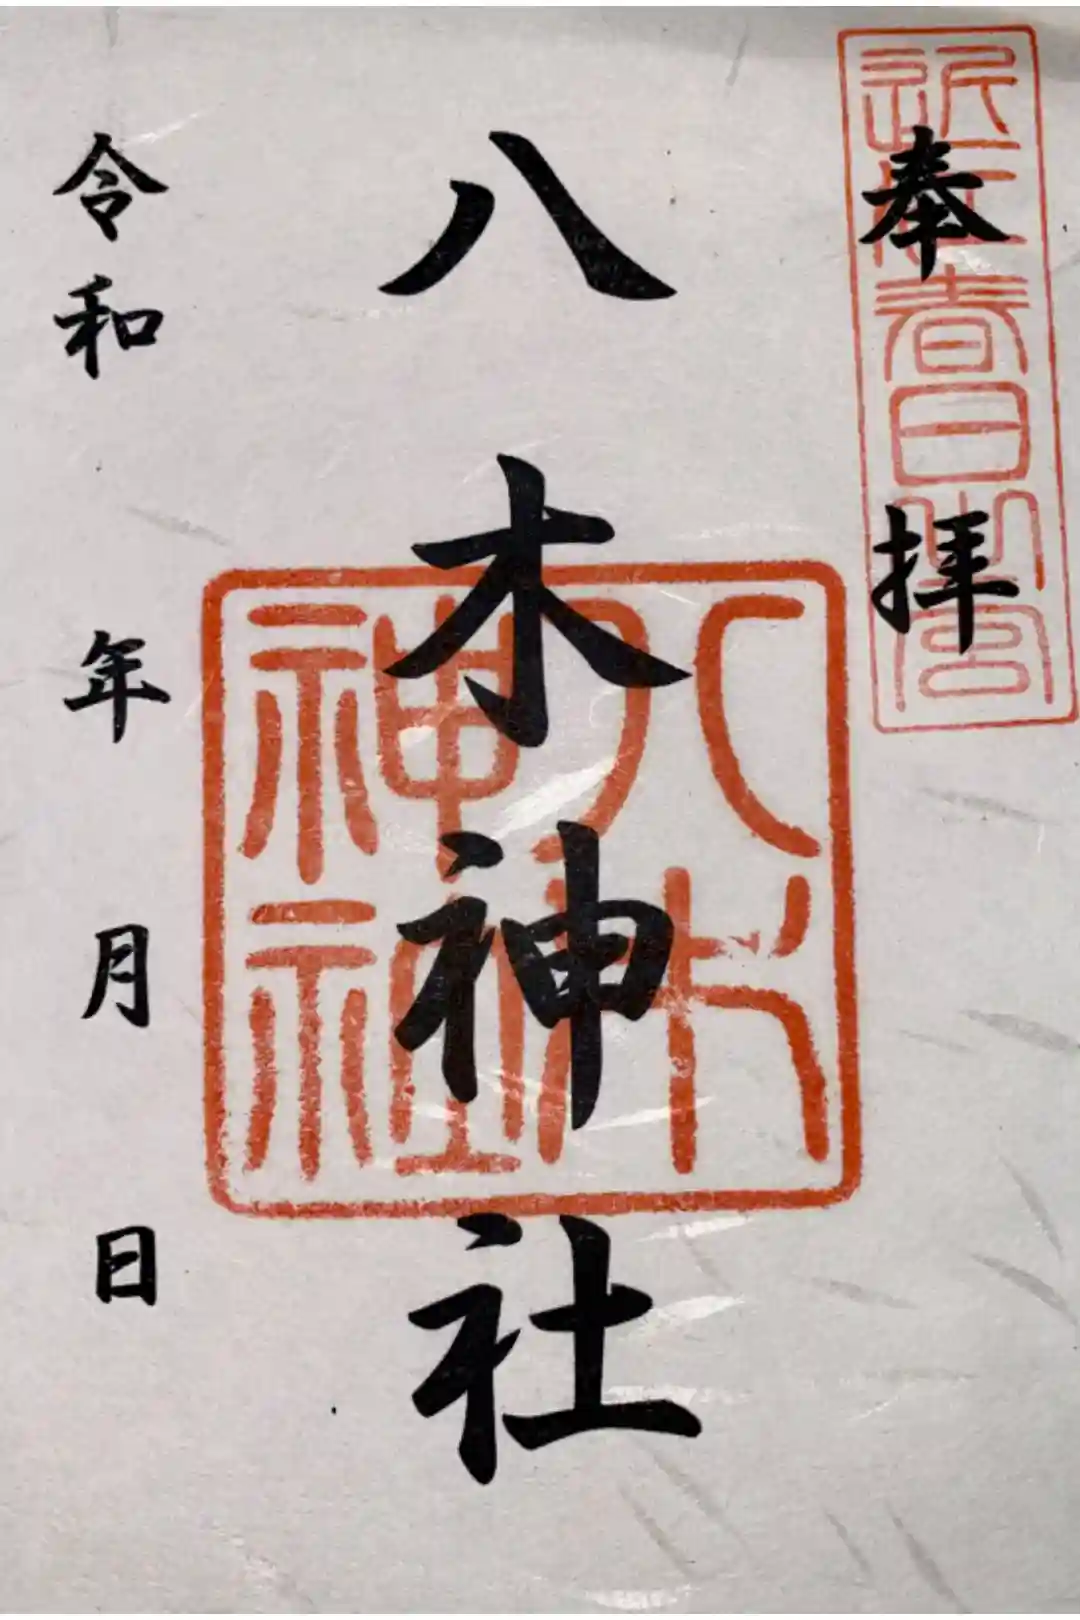 奉拝
近江春日宮
八木神社
八木神社
令和 年 月 日